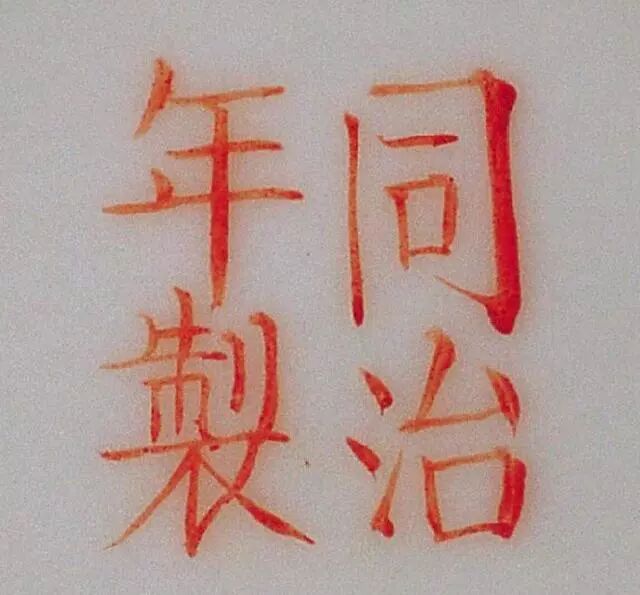 同治
年製